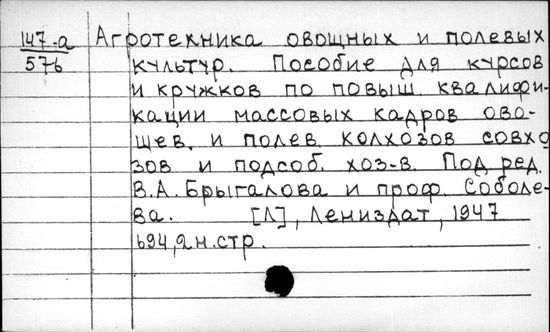 147-а Агротехника овощных и полевых
576 культур. Пособие для курсов
и кружков по повыш. квалифи-
кации массовых кадров ово-
щев. и полев. колхозов совхо
зов и подсоб. хоз-в. Под ред.
В.А. Брыгалова и проф. Соболе-
ва. [Л], Лениздат, 1947
694,2 н. стр.